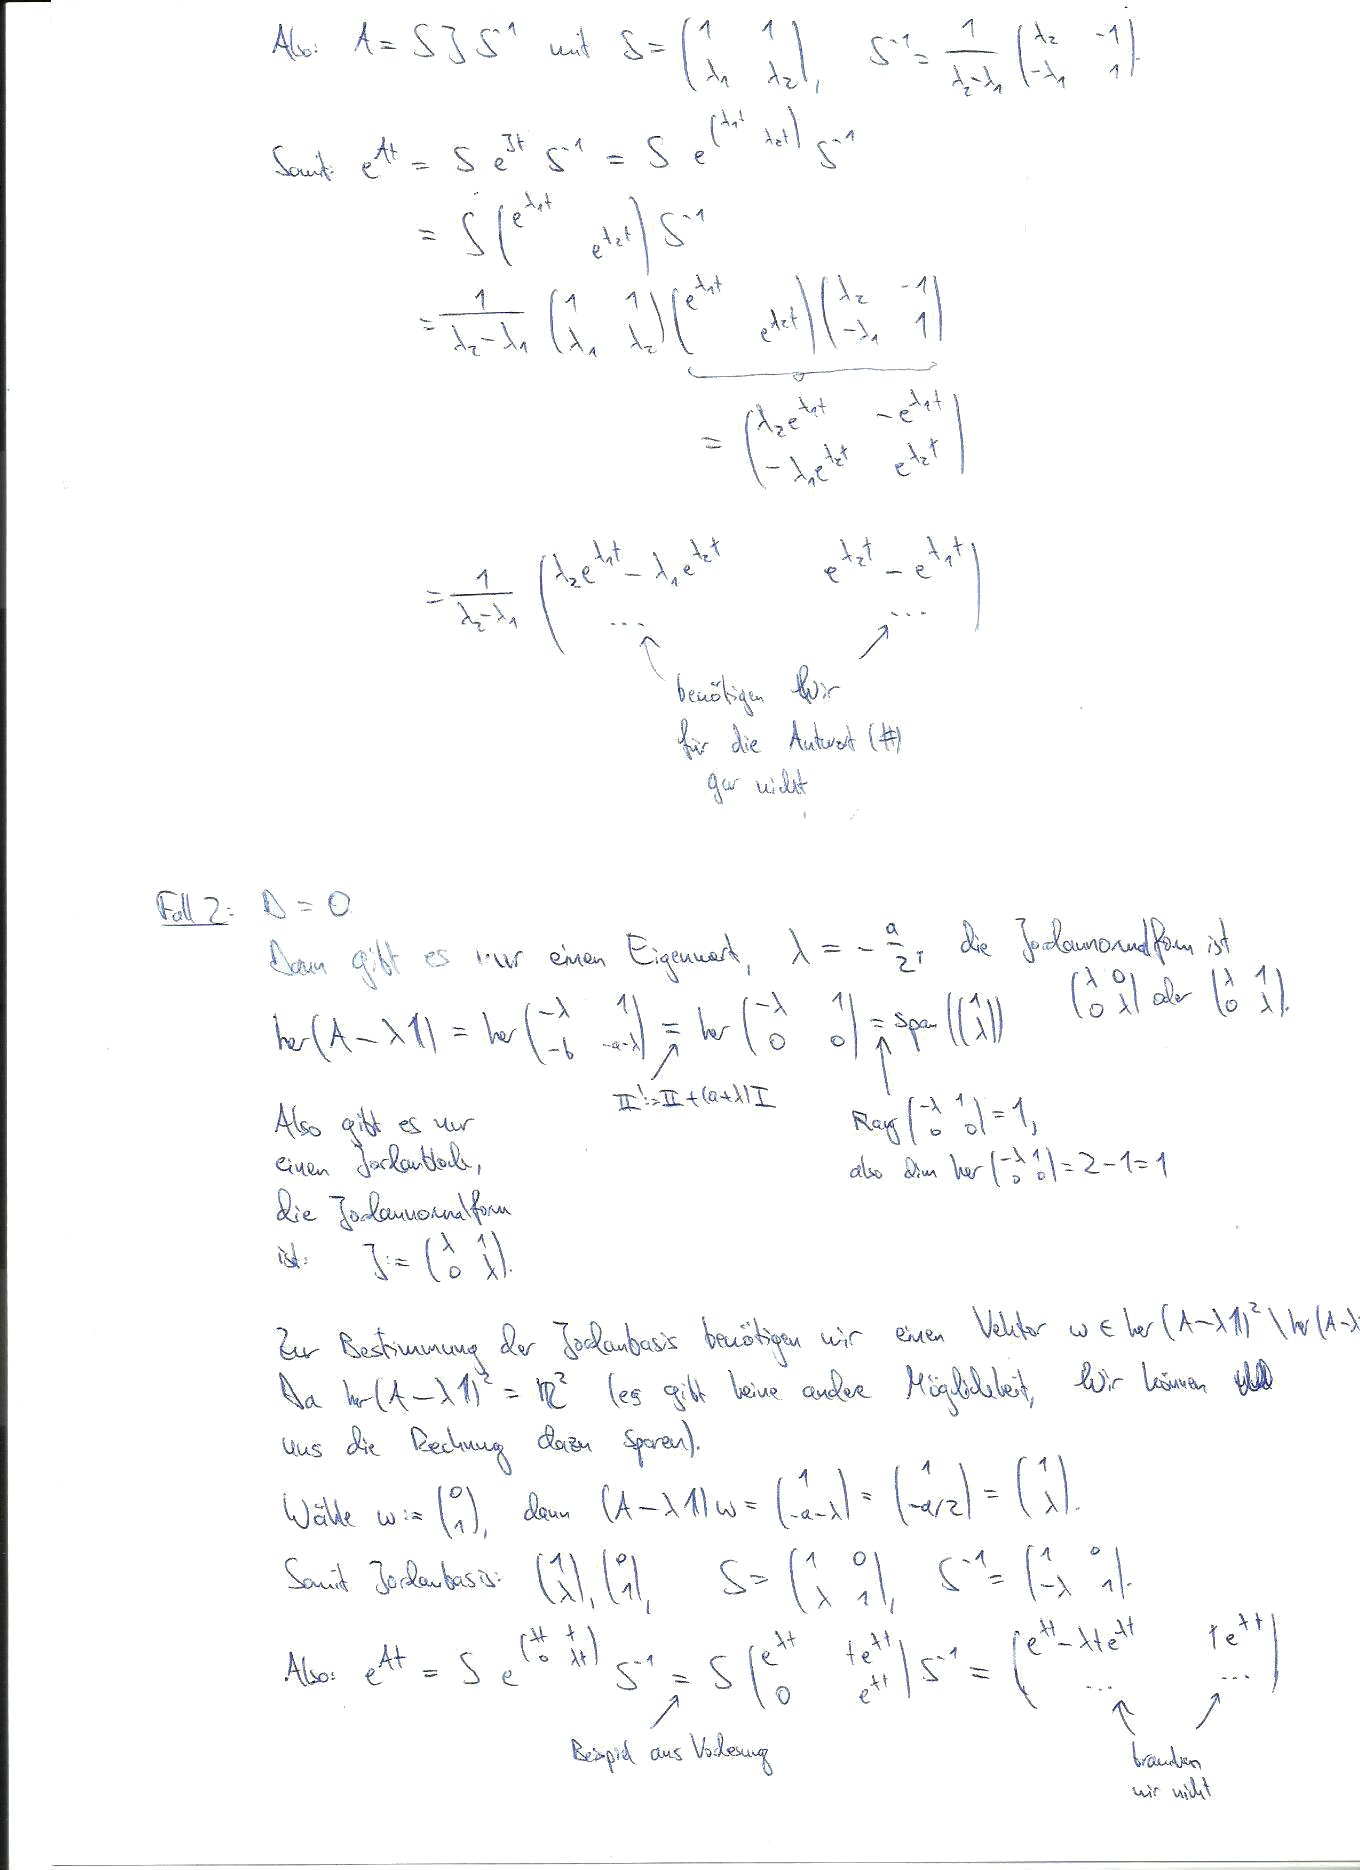 Also: A = S J S⁻¹ mit S = (1 1; λ₁ λ₂), S⁻¹ = 1/(λ₂-λ₁) (λ₂ -1; -λ₁ 1).
Somit: e^{At} = S e^{Jt} S⁻¹ = S e^{(λ₁t  λ₂t)} S⁻¹
= S (e^{λ₁t}  e^{λ₂t}) S⁻¹
= 1/(λ₂-λ₁) (1 1; λ₁ λ₂) (e^{λ₁t}  e^{λ₂t}) (λ₂ -1; -λ₁ 1)
= (λ₂e^{λ₁t} -e^{λ₁t}; -λ₁e^{λ₂t} e^{λ₂t})
= 1/(λ₂-λ₁) (λ₂e^{λ₁t} - λ₁e^{λ₂t}  e^{λ₂t} - e^{λ₁t}; ... ...)
benötigen wir
für die Antwort (#)
gar nicht
Fall 2: D = 0
Dann gibt es nur einen Eigenwert, λ = -a/2; die Jordannormalform ist
(λ 0; 0 λ) oder (λ 1; 0 λ).
ker(A-λ1) = ker(-λ 1; -b -a-λ) = ker(-λ 1; 0 0) = span((1; λ))
II' := II + (a+λ) I
Rang(-λ 1; 0 0) = 1,
also dim ker(-λ 1; 0 0) = 2-1 = 1
Also gibt es nur
einen Jordanblock,
die Jordannormalform
ist: J := (λ 1; 0 λ).
Zur Bestimmung der Jordanbasis benötigen wir einen Vektor w ∈ ker(A-λ1)² \ ker(A-λ
Da ker(A-λ1)² = ℝ² (es gibt keine andere Möglichkeit, wir können
uns die Rechnung dazu sparen).
Wähle w := (0; 1), dann (A-λ1)w = (1; -a-λ) = (1; -a/2) = (1; λ).
Somit Jordanbasis: (1; λ), (0; 1), S = (1 0; λ 1), S⁻¹ = (1 0; -λ 1).
Also: e^{At} = S e^{(λt t; 0 λt)} S⁻¹ = S (e^{λt} te^{λt}; 0 e^{λt}) S⁻¹ = (e^{λt} - λte^{λt}  te^{λt}; ... ...)
Beispiel aus Vorlesung
brauchen
wir nicht